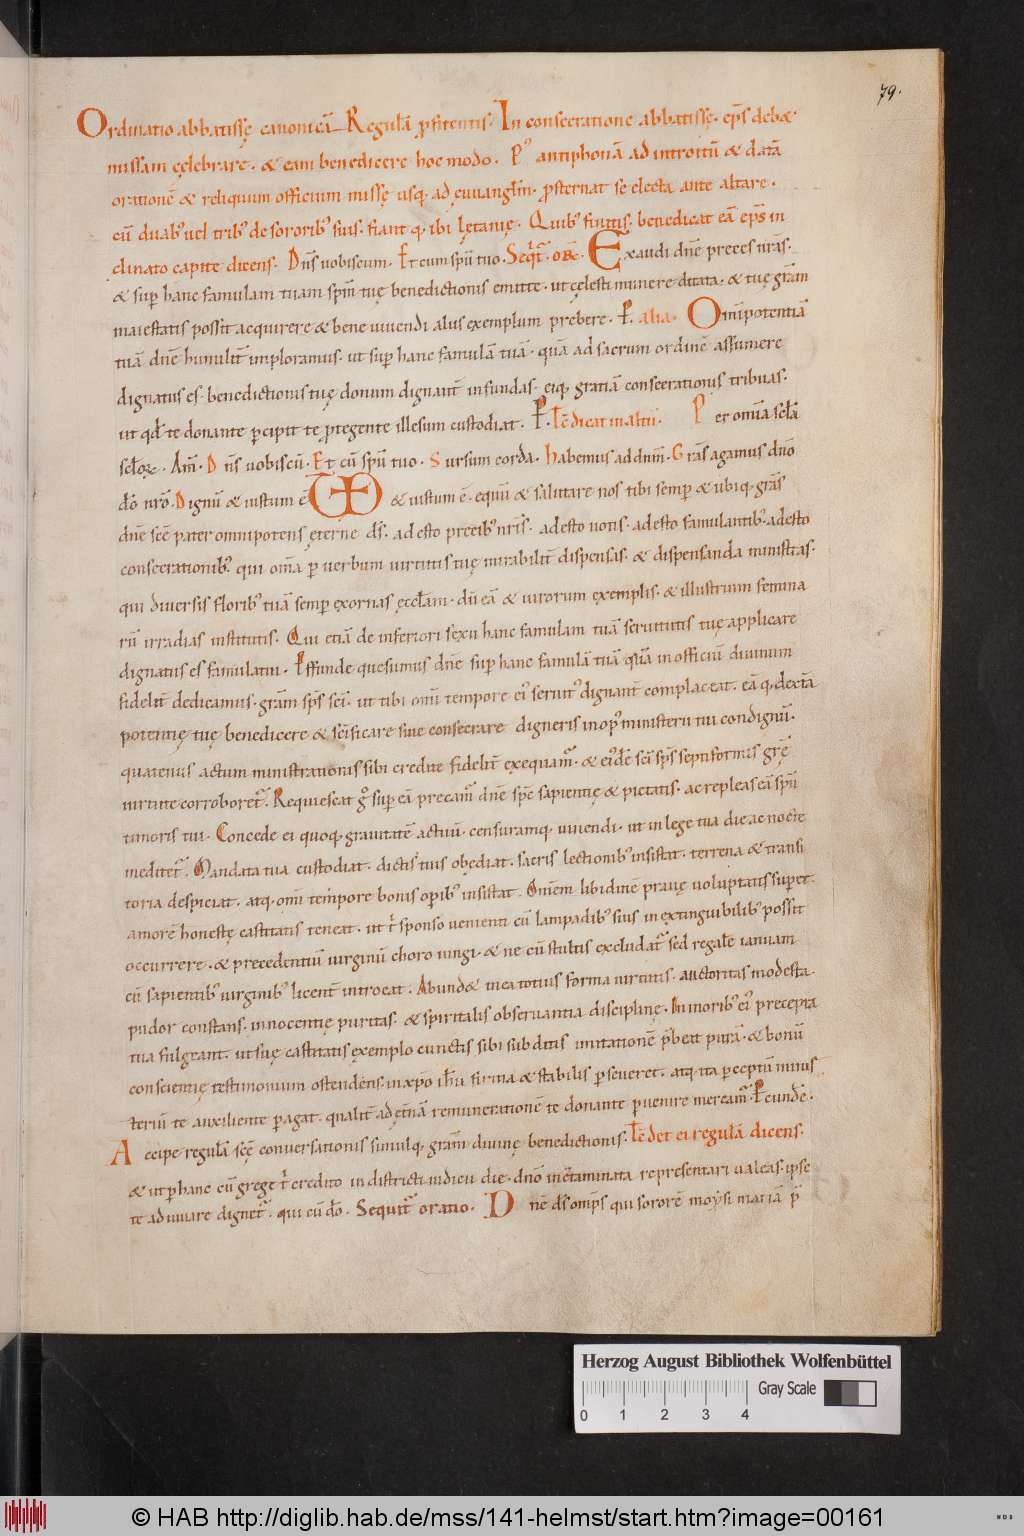 79.
Ordinatio abbatissę canonicā Regulā ꝓfitentis. In consecratione abbatissę. ep̄s deb&
missam cęlebrare. & eam benedicere hoc modo. P' antiphonā ad introitū & datā
orationē & reliquum officium missę usq; ad euuangl̄m. ꝓsternat se electa ante altare.
cū duab; uel trib; de sororib; suis. fiant q; ibi lętanię. Quib; finitis. benedicat eā ep̄s in
clinato capite dicens. Dn̄s uobiscum. Et cum sp̄u tuo. Seqt̄. or̄. Exaudi dn̄e preces nr̄as.
& suꝑ hanc famulam tuam sp̄m tuę benedictionis emitte. ut cęlesti munere ditata. & tuę gr̄am
maiestatis possit acquirere & bene uiuendi aliis exemplum prebere. P. alia. Om̄ipotentiā
tuā dn̄e humilit̄ imploramus. ut suꝑ hanc famulā tuā. quā ad sacrum ordinē assumere
dignatus es. benedictionis tuę donum dignant̄ infundas. eiq; gratiā consecrationis tribuas.
ut qd̄ te donante ꝑcipit te ꝓtegente illesum custodiat. P. Ic̄ dicat in altū. Per omīa sc̄la
sc̄loꝝ. Am̄. Dn̄s uobiscū. Et cū sp̄u tuo. Sursum corda. Habemus ad dnm̄. Gr̄as agamus dn̄o
dō nr̄o. Dignū & iustum ē. UD & iustum ē. equū & salutare nos tibi semꝑ & ubiq; gr̄as
dn̄e sc̄e pater omnipotens ęterne ds̄. adesto precib; nr̄is. adesto uotis. adesto famulantib;. adesto
consecrationib;. qui om̄a ꝑ uerbum uirtutis tuę mirabilit̄ dispensas. & dispensanda ministras.
qui diuersis florib; tuā semꝑ exornas ęccl̄am. dū eā & uirorum exemplis. & illustrium femina
rū irradias institutis. Qui etiā de inferiori sexu hanc famulam tuā seruitutis tuę applicare
dignatus es famulatui. Effunde quesumus dn̄e suꝑ hanc famulā tuā quā in officiū diuinum
fidelit̄ dedicamus. gr̄am sp̄s sc̄i. ut tibi om̄i tempore ei; seruit; dignant̄ complaceat. eā q; dext̄a
potentię tuę benedicere & sc̄ificare siue consecrare digneris in op; ministerii tui condignū.
quatenus actum ministrationis sibi credite fidelit̄ exequam̄. & ei;d̄e sc̄i sp̄s septiformis gr̄ę
uirtute corroboret̄. Requiescat g° suꝑ eā precam̄ dn̄e sp̄c sapientię & pietatis. ac repleas eā sp̄u
timoris tui. Concede ei quoq; grauitatē actuū. censuramq; uiuendi. ut in lege tua die ac nocte
meditet̄. Mandata tua custodiat. dictis tuis obediat. sacris lectionib; insistat. terrena & transi
toria despiciat. atq; om̄i tempore bonis oꝑib; insistat. Om̄em libidinē prauę uoluptatis suꝑet.
amorē honestę castitatis teneat. ut t̄ sponso uenienti cū lampadib; suis inextinguibilib; possit
occurrere. & precedentiū uirginū choro iungi. & ne cū stultis excludat̄ sed regale ianuam
cū sapientib; uirginib; licent̄ introeat. Abund& in ea totius forma uirtutis. auctoritas modesta.
pudor constans. innocentię puritas. & spiritalis obseruantia disciplinę. In morib; ei; precepta
tua fulgeant. ut suę castitatis exemplo cunctis sibi subditis imitationē p̄beat purā. & bonū
conscientię testimonium ostendens. in xp̄o ih̄u firma & stabilis ꝑseueret. atq; ita ꝑceptū minis
teriū te auxiliente ꝑagat. qualit̄ ad et̄nā remunerationē te donante ꝑuenire meream̄. P. eundē.
Accipe regulā sc̄ę conuersationis simulq; gr̄am diuinę benedictionis. Ic̄ det ei regulā dicens.
& ut ꝑ hanc cū grege t̄ credito in districti iudicii die. dn̄o inc̄taminata representari ualeas. ipse
te adiuuare dignet̄. qui cū dō. Sequit̄ oratio. Dn̄e ds̄ omp̄s qui sororē moysi mariā p̄
Herzog August Bibliothek Wolfenbüttel
Gray Scale
0 1 2 3 4
© HAB http://diglib.hab.de/mss/141-helmst/start.htm?image=00161